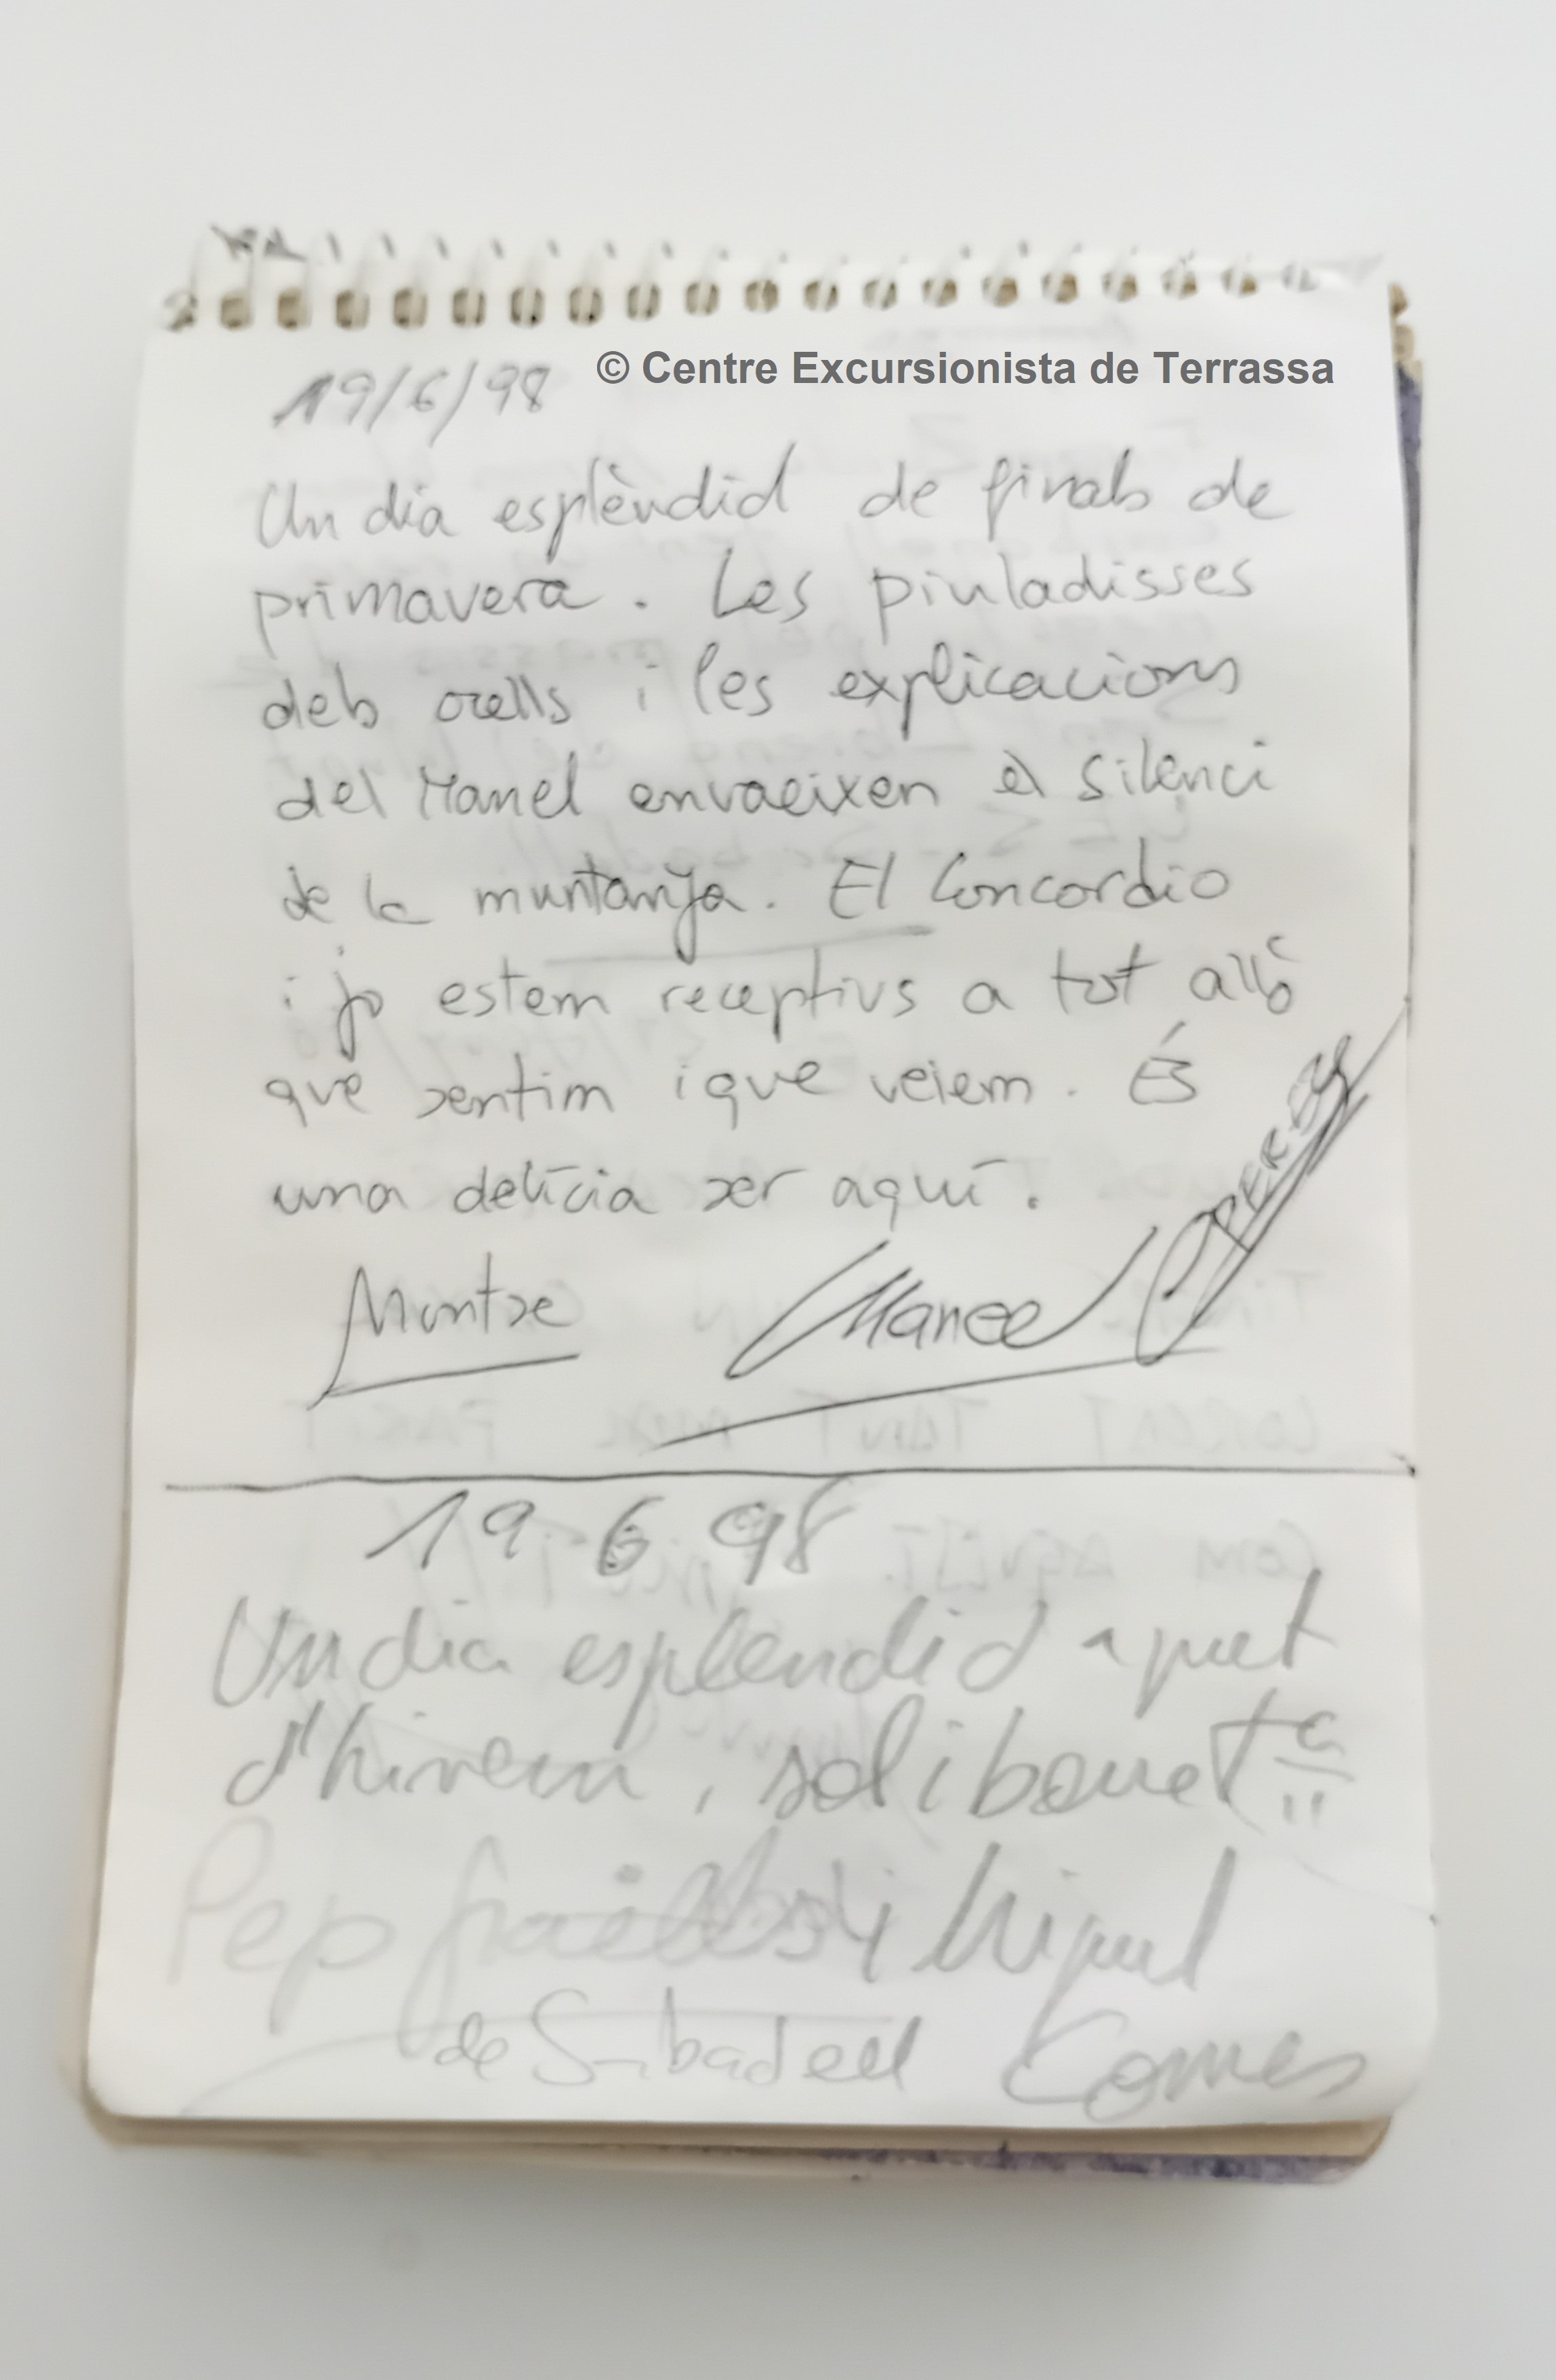 © Centre Excursionista de Terrassa
19/6/98
Un dia esplèndid de finals de
primavera. Les piuladisses
dels ocells i les explicacions
del Manel envaeixen el silenci
de la muntanya. El Concordio
i jo estem receptius a tot allò
que sentim i que veiem. És
una delícia ser aquí.
Montse Manel
19.6.98
Un dia esplendid
d'hivern, sol i bon
Pep i Miquel
de Sabadell Comes